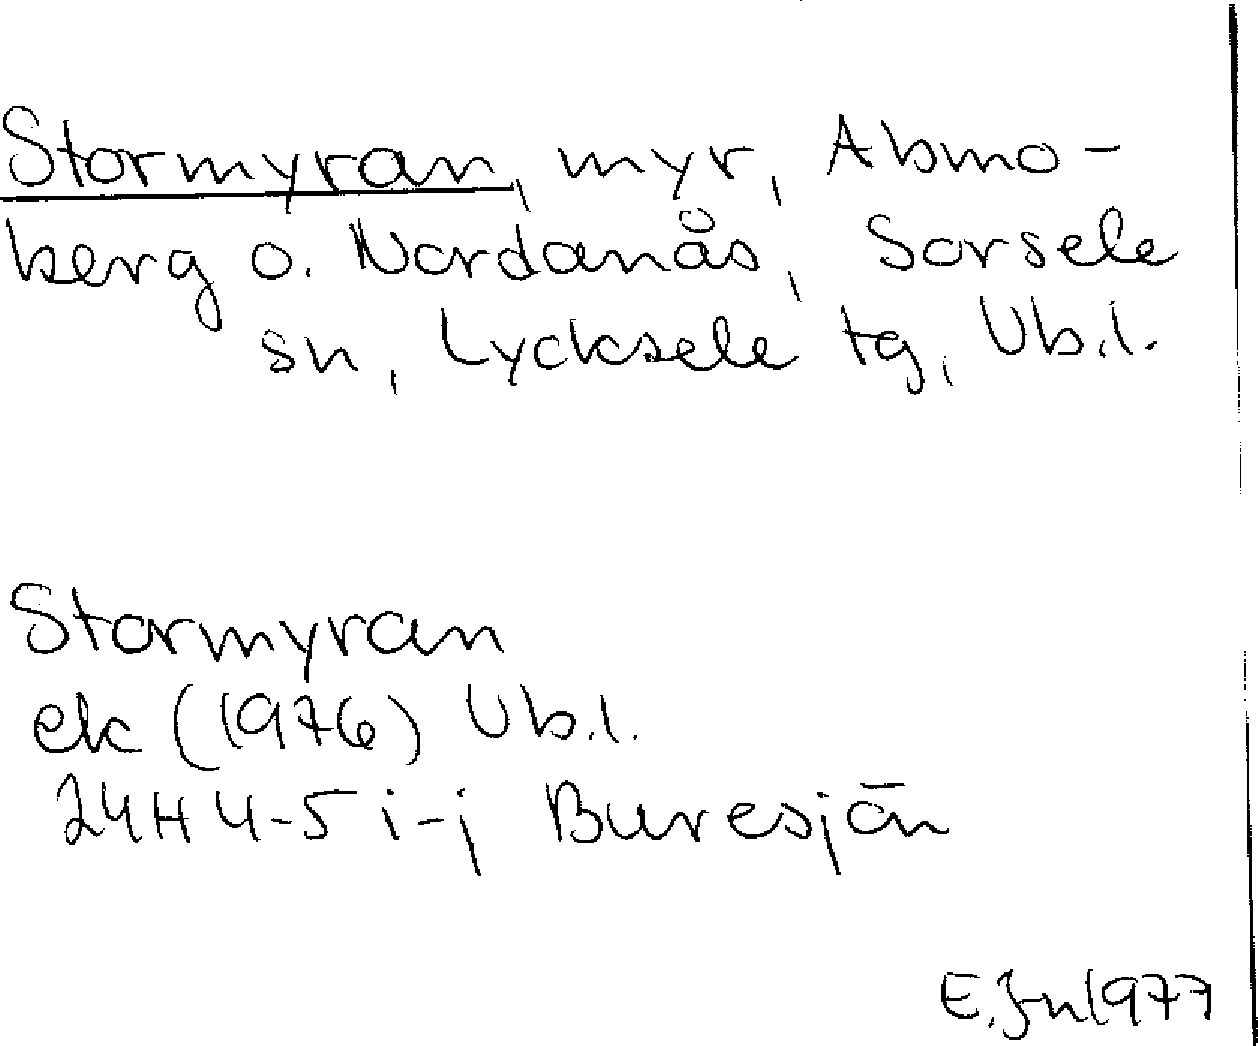 Stormyran, myr, Abmo-
berg o. Nordanås, Sorsele
sn, Lycksele tg, Vb.l.
Stormyran
ek (1976) Vb.l.
24H 4-5 i-j Buresjön
E. Jn 1977